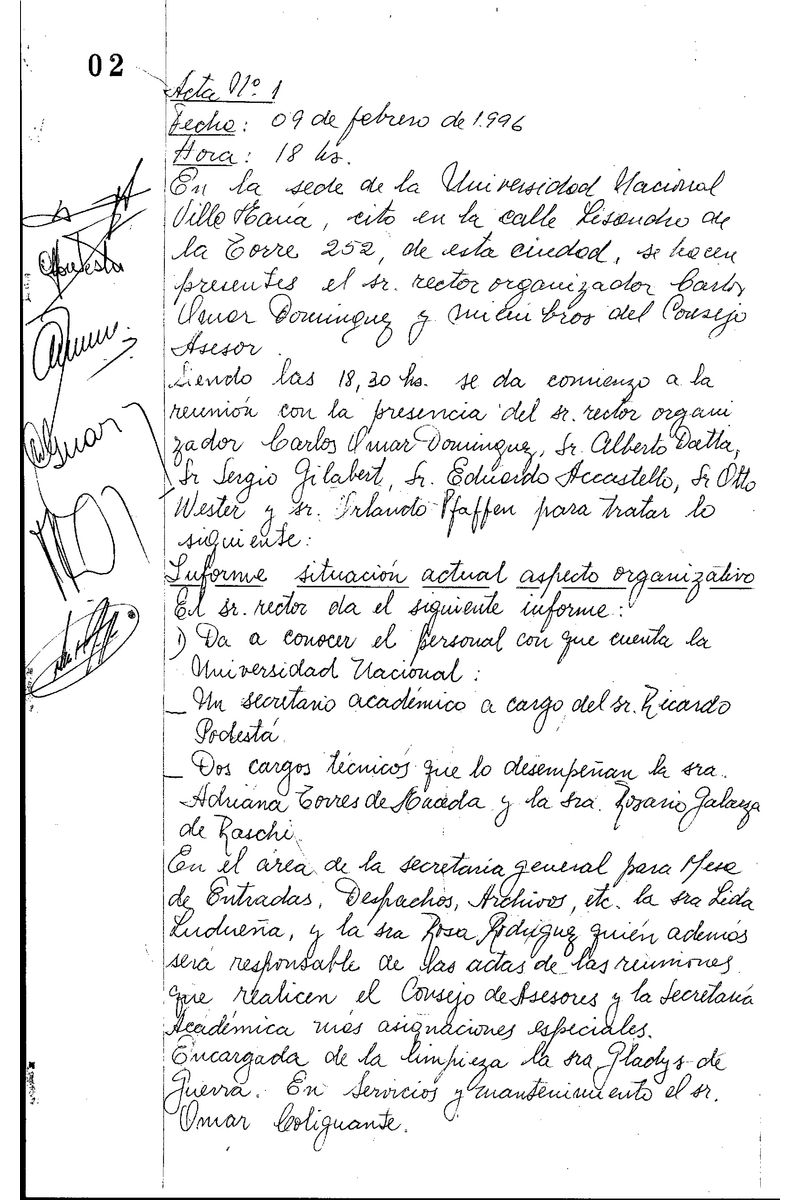 02
Acta Nº 1
Fecha: 09 de febrero de 1996
Hora: 18 hs.
En la sede de la Universidad Nacional
Villa María, cito en la calle Lisandro de
la Torre 252, de esta ciudad, se hacen
presentes el sr. rector organizador Carlos
Omar Dominguez y miembros del Consejo
Asesor
Siendo las 18,30 hs. se da comienzo a la
reunión con la presencia del sr. rector organi
zador Carlos Omar Dominguez, Sr. Alberto
Sr Sergio Gilabert, Sr. Eduardo Accastello, Sr Otto
Wester y sr. Orlando Pfaffen para tratar lo
siguiente:
Informe situación actual aspecto organizativo
El sr. rector da el siguiente informe:
1) Da a conocer el personal con que cuenta la
Universidad Nacional:
_ Un secretario académico a cargo del sr. Ricardo
Podestá
_ Dos cargos técnicos que lo desempeñan la sra.
Adriana Torres de Maceda y la sra. Rosario Galarza
de Raschi
En el área de la secretaría general para Mesa
de Entradas, Despachos, Archivos, etc. la sra Lida
Ludueña, y la sra Rosa Rodriguez quién además
será responsable de las actas de las reuniones
que realicen el Consejo de Asesores y la Secretaría
Académica más asignaciones especiales.
Encargada de la limpieza la sra Gladys de
Guerra. En Servicios y mantenimiento el sr.
Omar Coliguante.